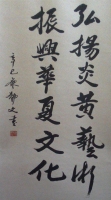 弘揚炎黃藝術
振興華夏文化
辛巳